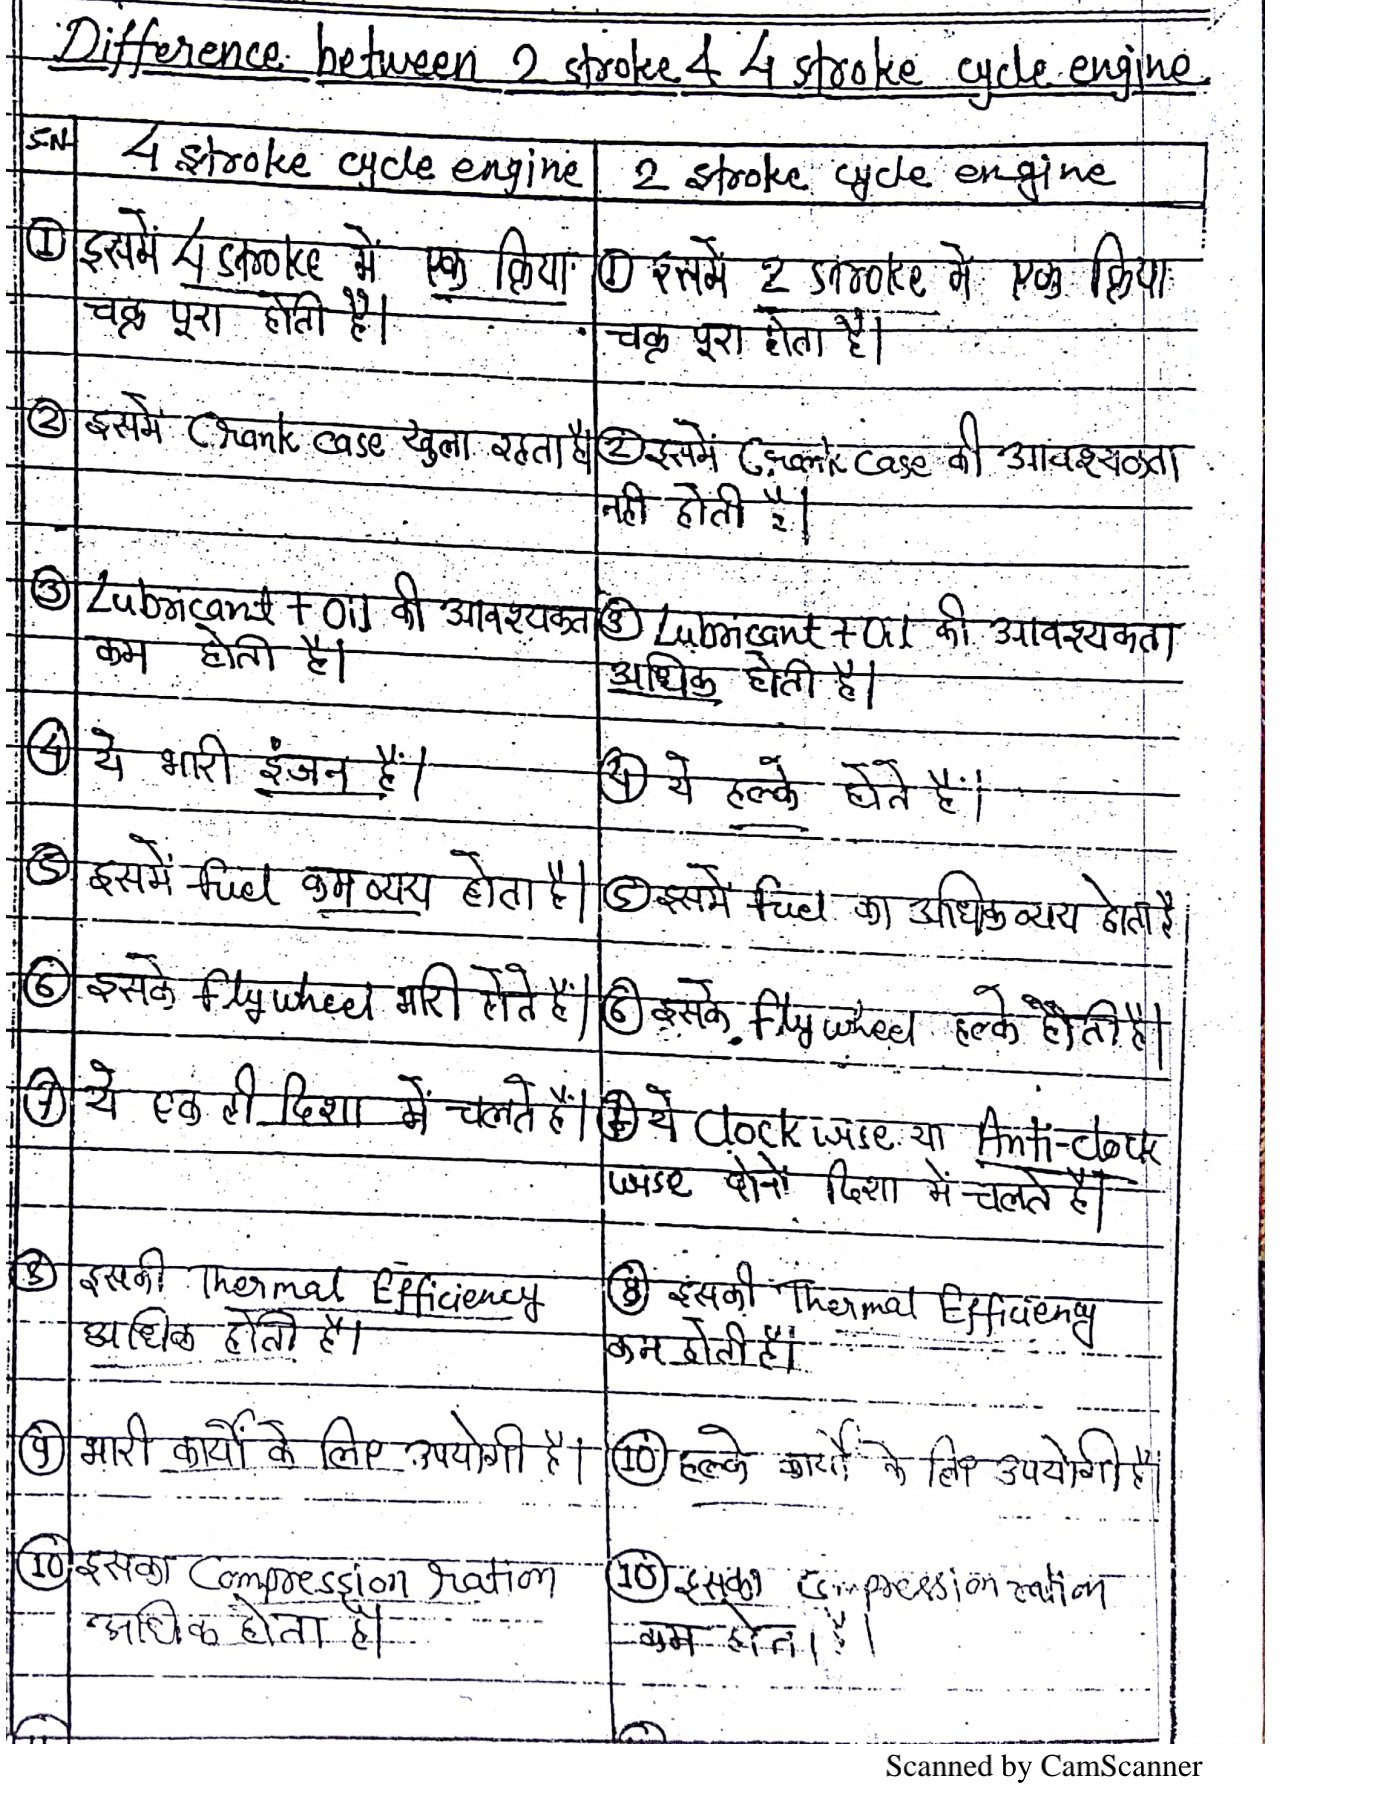 Difference between 2 stroke & 4 stroke cycle engine
S.N. 4 stroke cycle engine 2 stroke cycle engine
① इसमें 4 stroke में एक क्रिया
चक्र पूरा होती है।
① इसमें 2 stroke में एक क्रिया
चक्र पूरा होता है।
② इसमें Crank case खुला रहता है।
② इसमें Crank case की आवश्यकता
नही होती है।
③ Lubricant + Oil की आवश्यकता
कम होती है।
③ Lubricant + Oil की आवश्यकता
अधिक होती है।
④ ये भारी इंजन हैं।
④ ये हल्के होते हैं।
⑤ इसमें fuel कम व्यय होता है।
⑤ इसमें fuel का अधिक व्यय होता है।
⑥ इसके flywheel भारी होते हैं।
⑥ इसके flywheel हल्के होती है।
⑦ ये एक ही दिशा में चलते हैं।
⑦ ये Clock wise या Anti-clock
wise दोनों दिशा में चलते है।
⑧ इसकी Thermal Efficiency
अधिक होती है।
⑧ इसकी Thermal Efficiency
कम होती है।
⑨ भारी कार्यों के लिए उपयोगी है।
⑩ हल्के कार्यों के लिए उपयोगी है।
⑩ इसका Compression ration
अधिक होता है।
⑩ इसका Compression ration
कम होता है।
Scanned by CamScanner